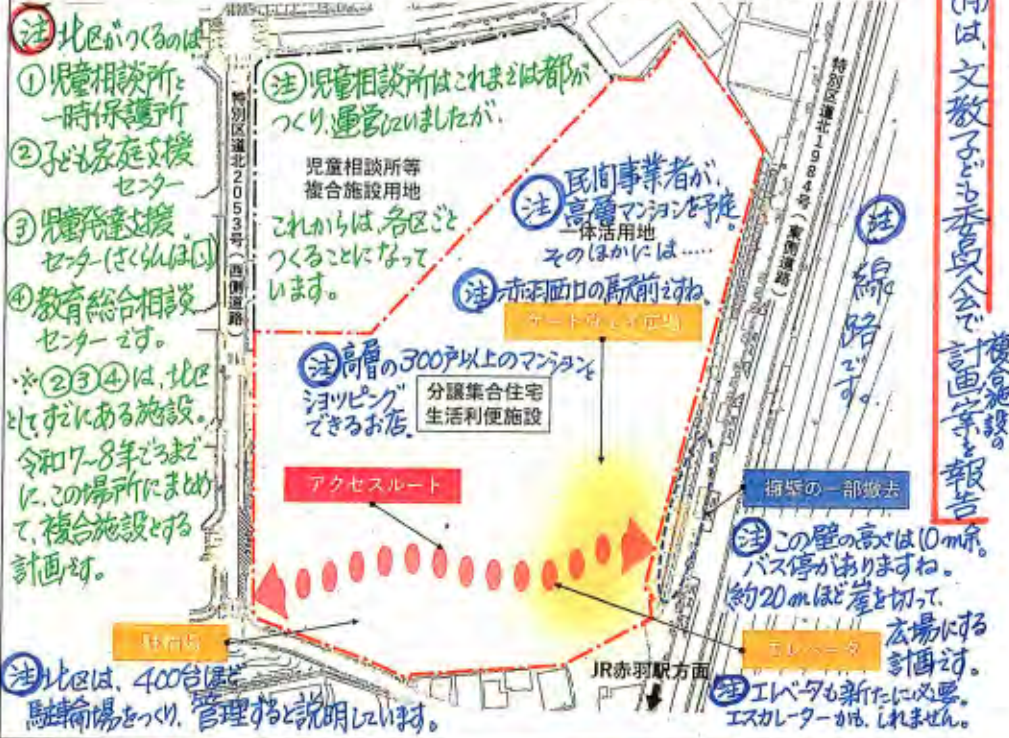 注 北区がつくるのは
① 児童相談所と
一時保護所
② 子ども家庭支援
センター
③ 児童発達支援
センター(さくらんぼ
④ 教育総合相談
センターです。
※②③④は、北区
としてすでにある施設。
令和7~8年ごろまで
に、この場所にまとめ
て、複合施設とする
計画です。
特別区道北2053号(西側道路)
注 児童相談所はこれまでは都が
つくり、運営していましたが、
児童相談所等
複合施設用地
これからは、各区ごと
つくることになって
います。
注 民間事業者が、
高層マンションを予定。
一体活用地
そのほかには……
注 赤羽西口の駅前ですね。
ゲートウェイ広場
注 高層の300戸以上のマンションと
ショッピング
できるお店。
分譲集合住宅
生活利便施設
アクセスルート
特別区道北1984号(東側道路)
注 線路です。
は、文教子ども委員会で
複合施設の
計画案を報告
擁壁の一部撤去
注 この壁の高さは10m余。
バス停がありますね。
約20mほど崖を切って、
広場にする
計画です。
エレベータ
注 エレベータも新たに必要。
エスカレーターかも、しれません。
JR赤羽駅方面
駐輪場
注 北区は、400台ほど
駐輪場をつくり、管理すると説明しています。